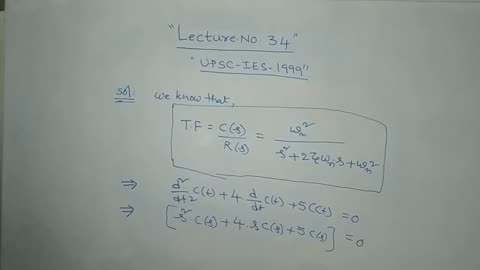 "Lecture No 34"
"UPSC-IES-1999"
Sol: we know that,
T.F = C(s)/R(s) = ωn²/(s²+2ζωn s+ωn²)
⇒ d²/dt² C(t) + 4 d/dt C(t) + 5 C(t) = 0
⇒ [s² C(s) + 4 s C(s) + 5 C(s)] = 0